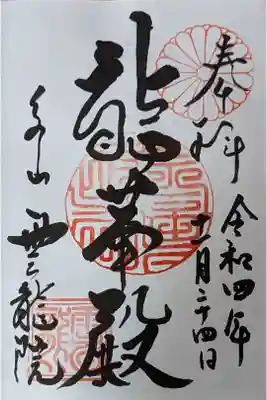 奉拝
令和四年
十一月二十四日
龍華殿
泉山 雲龍院